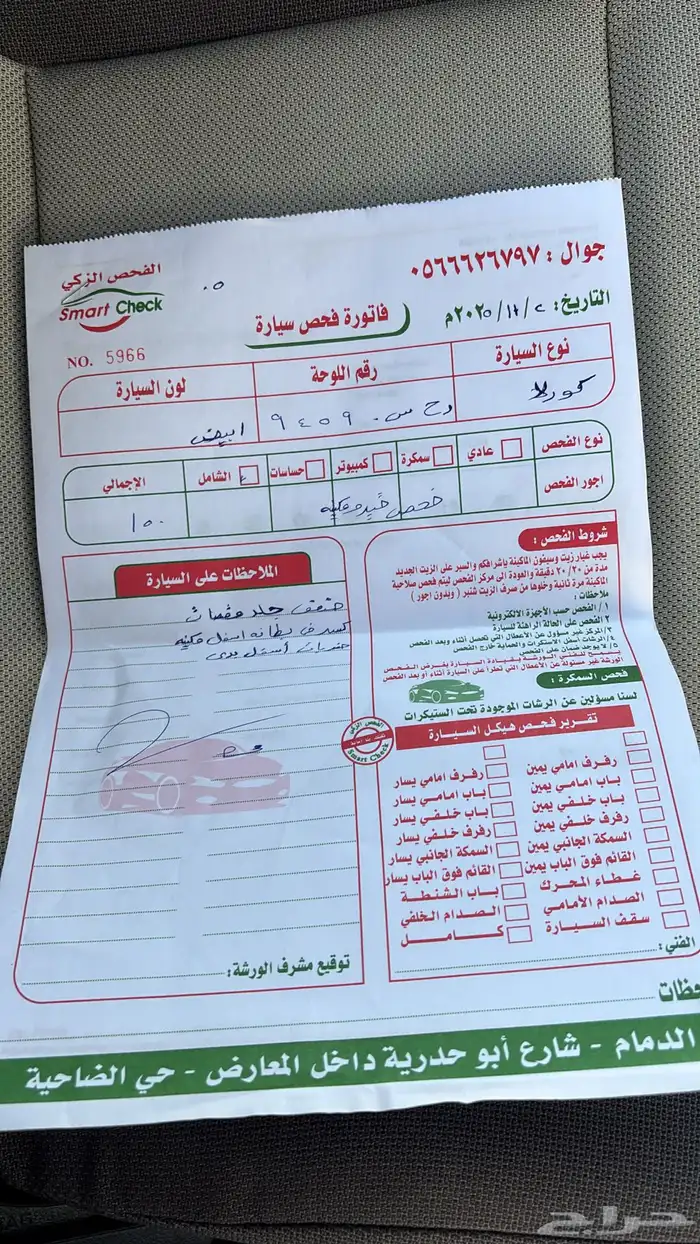 جوال : ٠٥٦٦٦٢٦٧٩٧
الفحص الزكي
Smart Check
التاريخ: ٢ / ١١ / ٢٠٢٥م
فاتورة فحص سيارة
NO. 5966
نوع السيارة
رقم اللوحة
لون السيارة
كورلا
د ح س ٩٤٥٩
ابيض
نوع الفحص
عادي
سمكرة
كمبيوتر
حساسات
الشامل
الإجمالي
اجور الفحص
فحص
ومكينه
١٥٠
شروط الفحص :
يجب غيار زيت وسيفون الماكينة بإشرافكم والسير على الزيت الجديد
مدة من ٢٠/٣٠ دقيقة والعودة الى مركز الفحص ليتم فحص صلاحية
الماكينة مرة ثانية وخلوها من صرف الزيت شنبر ( وبدون اجور )
ملاحظات :
١/ الفحص حسب الأجهزة الالكترونية
٢/ الفحص على الحالة الراهنة للسيارة
٣/ المركز غير مسؤول عن الأعطال التي تحصل أثناء وبعد الفحص
٤/ الرشات أسفل الاستكرات والحماية خارج الفحص
٥/ لا يوجد ضمان على الفحص
يسمح للفني الورشة بقيادة السيارة بغرض الفحص
الورشة غير مسئولة عن الأعطال التي تطرأ على السيارة أثناء أو بعد الفحص
فحص السمكرة :
لسنا مسؤلين عن الرشات الموجودة تحت الستيكرات
تقرير فحص هيكل السيارة
رفرف امامي يمين
رفرف امامي يسار
باب امامي يمين
باب امامي يسار
باب خلفي يمين
باب خلفي يسار
رفرف خلفي يمين
رفرف خلفي يسار
السمكة الجانبي يمين
السمكة الجانبي يسار
القائم فوق الباب يمين
القائم فوق الباب يسار
غطاء المحرك
باب الشنطة
الصدام الأمامي
الصدام الخلفي
سقف السيارة
كامل
الفني:
الملاحظات على السيارة
جلد مقصات
كسر في بطانه اسفل مكينه
اسفل
الفحص الزكي
Smart Check
توقيع مشرف الورشة:
حظات
الدمام - شارع أبو حدرية داخل المعارض - حي الضاحية
حراج